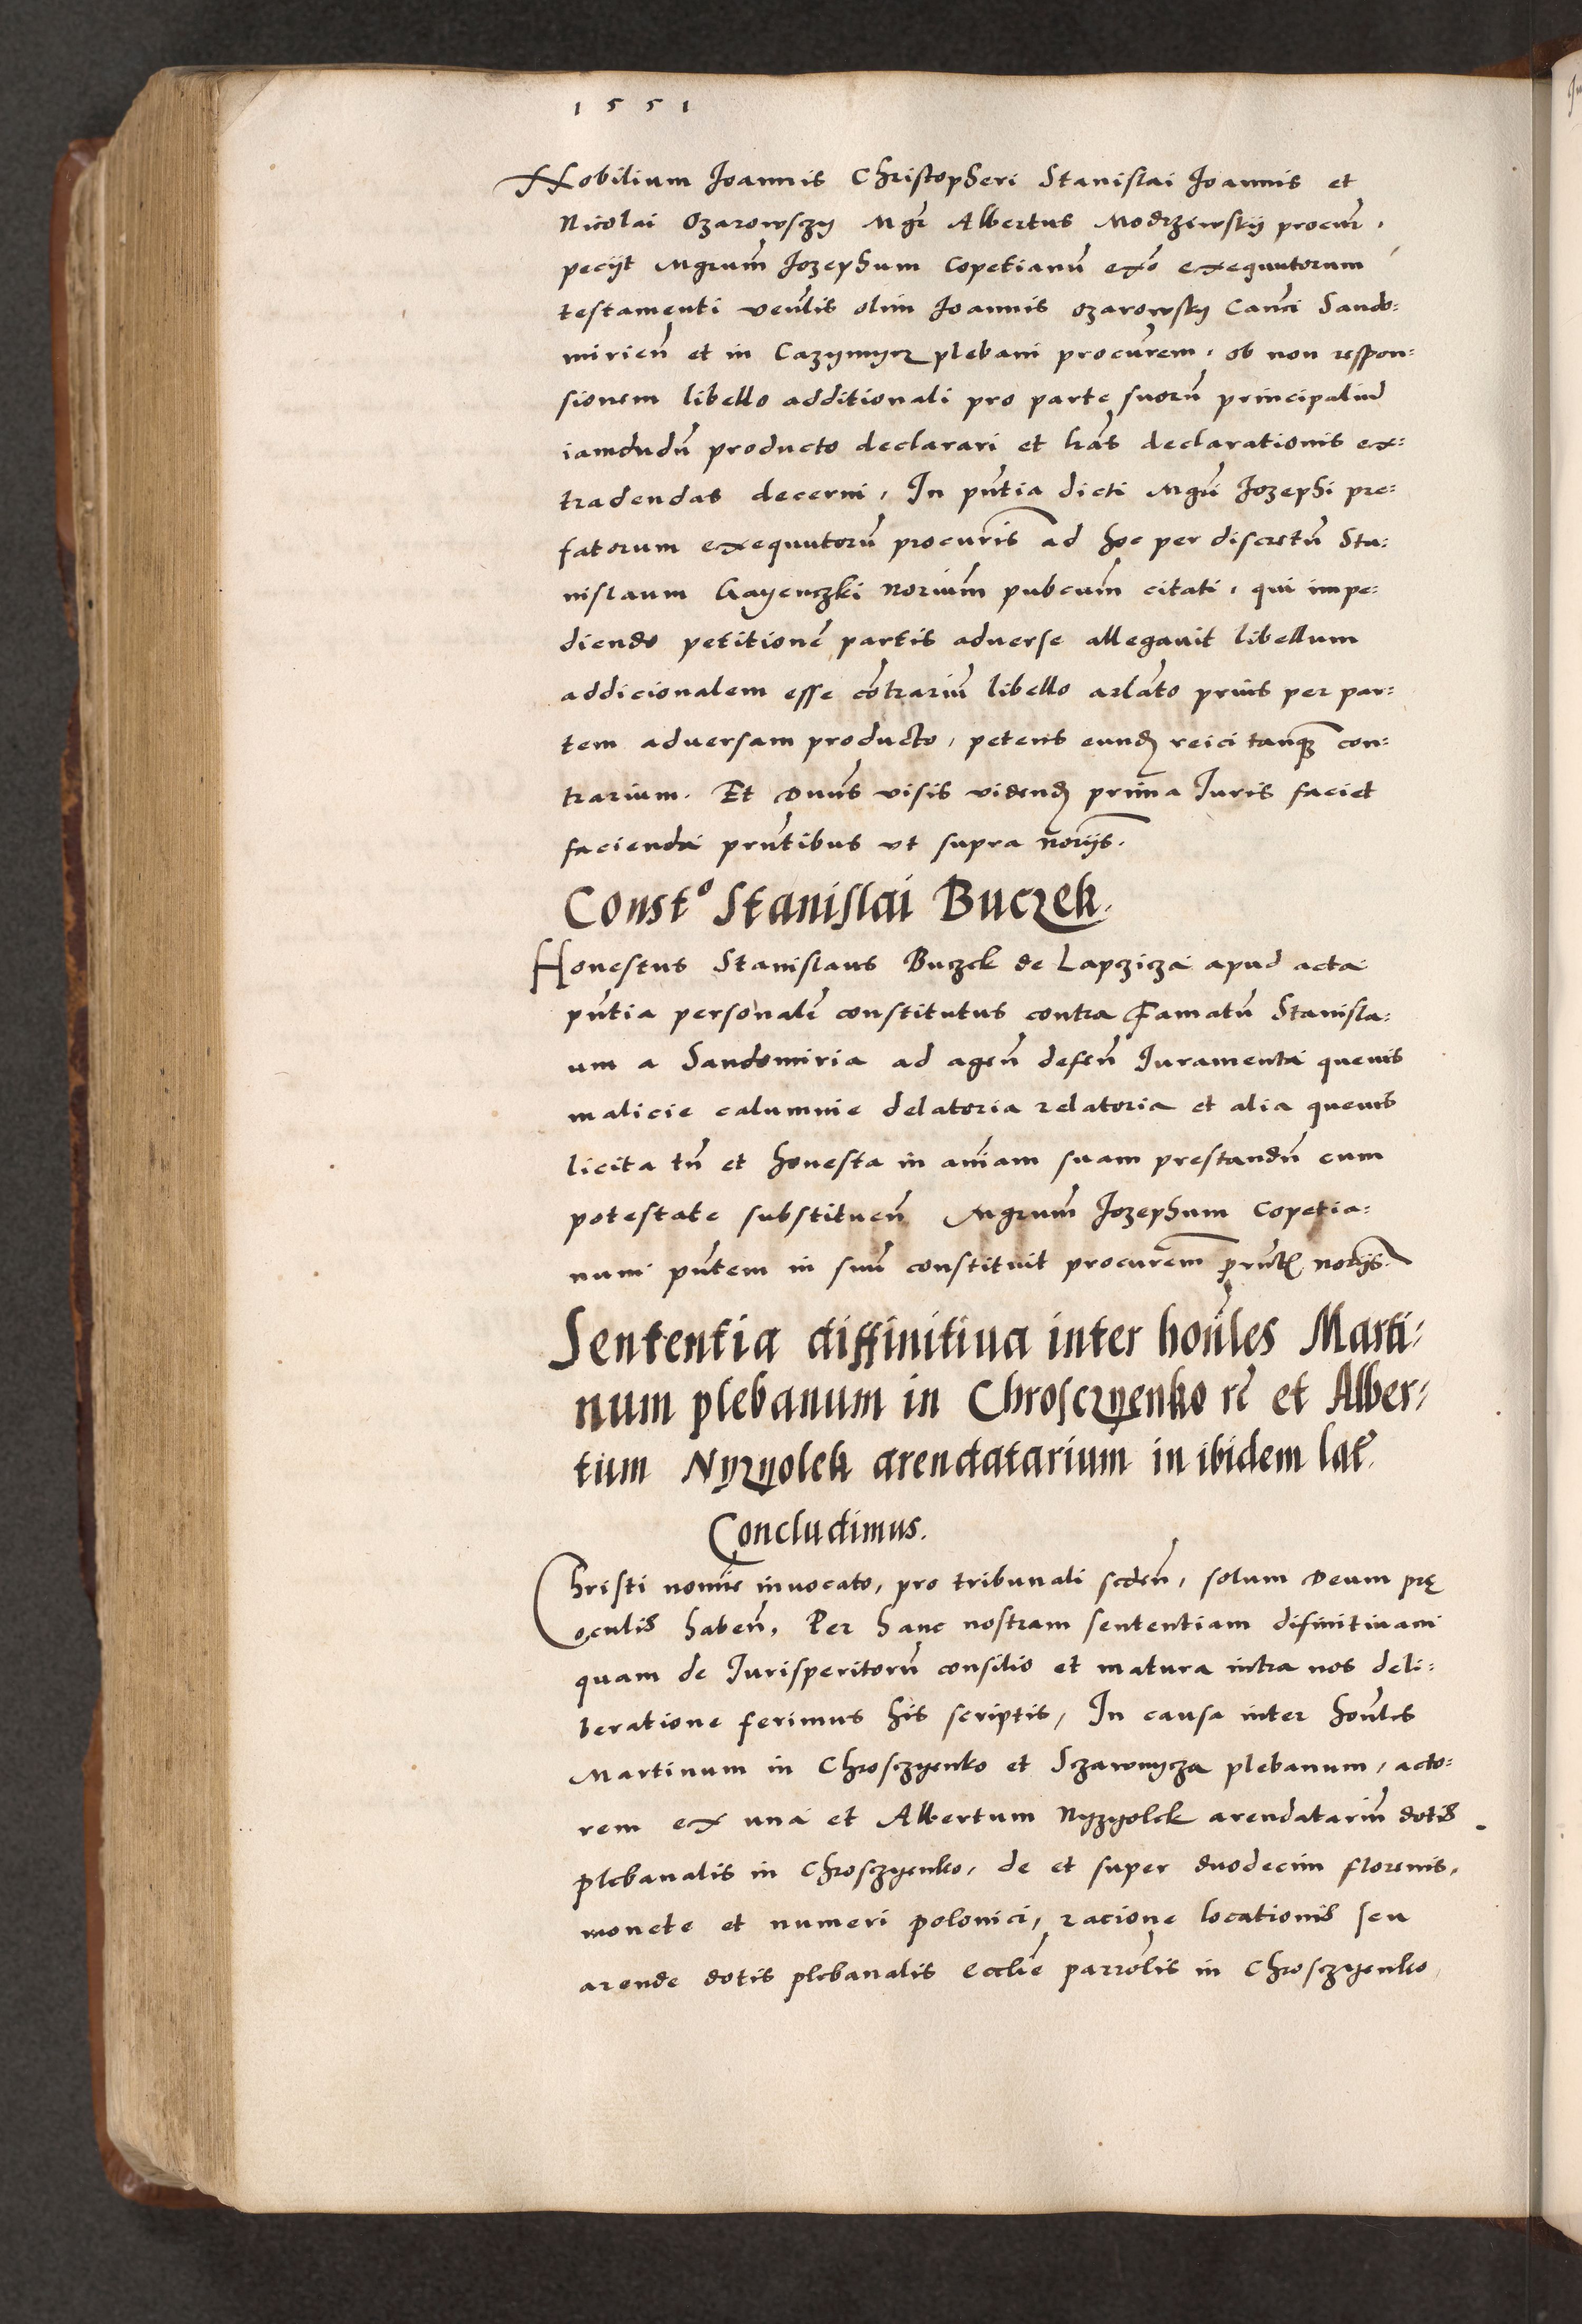 1551
Nobilium Joannis Christopheri Stanislai Joannis et
Nicolai Ozarowsczy Mgr̃ Albertus Modrzewskÿ procur̃,
pecijt Mgrum̃ Jozephum Copetianũ exõ exequutorum
testamenti veñlis olim Joannis Ozarowskÿ Canci Sando=
mirieñ et in Cazÿmÿrz plebani procur̃em, ob non respon=
sionem libello additionali pro parte suorũ principaliũ
iamdudũ producto declarari et lrãs declarationis ex=
tradendas decerni, In pñtia dicti Mgri Jozephi pre=
fatorum exequutorũ procur̃is ad hoc per discretũ Sta=
nislaum Gayenczki noriũm pubcum̃ citati, qui impe=
diendo petitionẽ partis adverse allegavit libellum
addicionalem esse cõntrariũm libello arlãto prius per par=
tem adversam producto, petens eundꝫ reici tanꝗꝫ con=
trarium. Et Dnũs visis videndꝫ prima Juris faciet
facienda pr̃ntibus vt supra norijs.
Constº Stanislai Buczek.
Honestus Stanislaus Buczek de Lapczicza apud acta
pñtia personalr̃ constitutus contra Famatũ Stanisla=
um a Sandomiria ad ageñ defeñ Juramenta quevis
malicie calumnie delatoria relatoria et alia quevis
licita tñ et honesta in aniam̃ suam prestandũ cum
potestate substitueñ Mgrum̃ Jozephum Copetia=
num pñtem in suũ constituit procurem̃ pr̃nt norijs.
Sententia diffinitiua inter hoñles Marti=
num plebanum in Chrosczÿenko rẽ et Alber=
tum Nÿzÿolek arendatarium in ibidem lat̃.
Concludimus.
Christi nomĩe invocato, pro tribunali sedeñ, solum Deum prę
oculis habeñ, Per hanc nostram sententiam difinitivam
quam de Jurisperitorũ consilio et matura intra nos deli=
beratione ferimus his scriptis, In causa inter hoñles
Martinum in Chrosczÿenko et Sczawnÿcza plebanum, acto=
rem ex una et Albertum Nÿzÿolek arendatariũ dotis
plebanalis in Chrosczÿenko, de et super duodecim florenis,
monete et numeri polonici, racione locationis seu
arende dotis plebanalis Ecclĩe parrõlis in Chrosczÿenko,